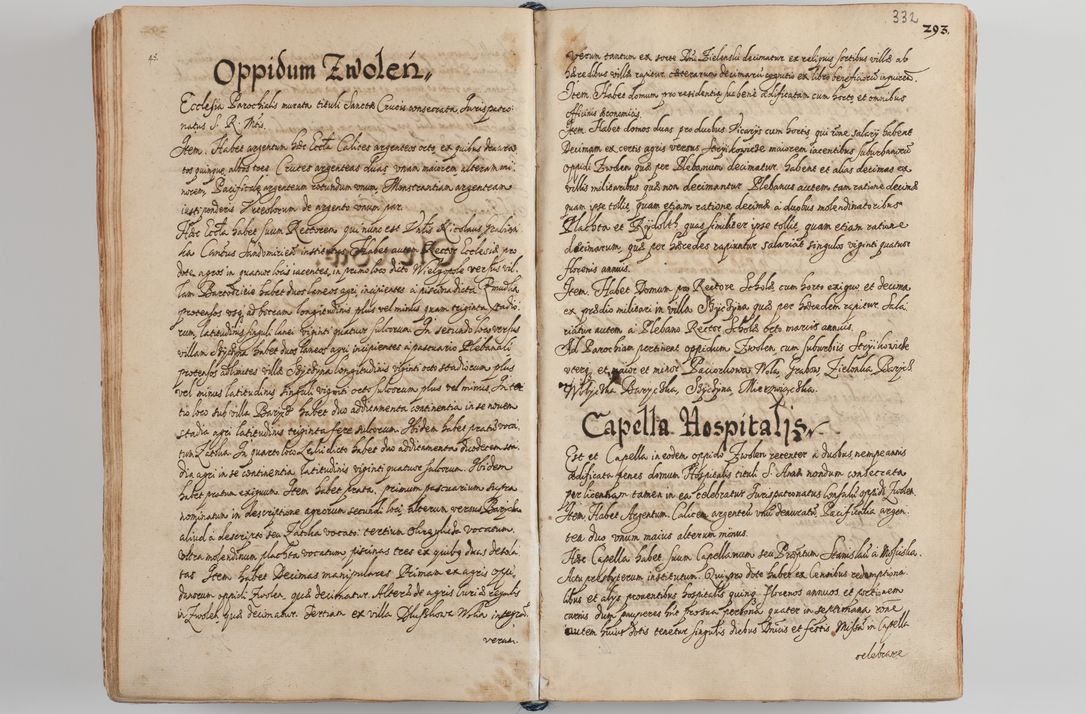 45.
Oppidum Zwoleń
Ecclesia Parochialis murata tituli Sanctæ Crucis consecrata, Jurispatro-
natus S. R. Mtis.
Item. Habet argentum hæc Eccla Calices argenteos octo ex quibus deaura-
tos quinque albos tres Cruces argenteas duas unam maiorem alteram mi-
norem, Pacificale argenteum rotundum unum, Monstrantiam argenteam
iusti ponderis Urceolorum de argento unum par.
Hæc Eccla habet suum Rectorem qui nunc est Nicolaus
Cantus Sandomirien institutus. Habet autem Rector Ecclesiæ pro
dote agros in quatuor locis iacentes, in primo loco dicto Wielgopole versus vil-
lam Bartodzieie habet duos laneos agri, incipientes a piscina dicta
protensos usq ad boream longitudinis plus vel minus quam triginta stadio-
rum, latitudinis singuli lanei viginti quatuor sulcorum. In secundo loco versus
villam Sÿcÿna habet duos laneos agri incipientes a pascuario Plebanali
protensos ad limites villæ Sÿcÿna longitudinis viginti octo stadiorum plus
vel minus latitudinis singuli viginti octo sulcorum plus vel minus. In ter-
tio loco sub villa Barycz habet duo addicamenta continentia in se novem
stadia agri latitudinis triginta fere sulcorum. Ibidem habet prata voca-
tum Zatula. In quarto loco dicto habet duo addicamenta duodecem sta-
dia agri in se continentia, latitudinis viginti quatuor sulcorum. Ibidem
habet pratum exiguum. Item habet prata, primum pascuarium supra
nominatum in descriptione agrorum secundi loci, alterum versus Barycka
aliud a descripto seu Zatula vocato: tertium vocatum.
ultra molendinum plachta vocatum, piscinas tres ex quibq duas desola-
tas Item habet Decimas manipulares. Primam ex agris oppi-
danorum oppidi Zwolen, quæ decimatur. Alteram de agris Curiæ regalis
in Zwolen quæ decimatur. Tertiam ex villa Wola integrã.
verum.
332
293.
verum tantum ex sorte Dni Zielenski decimatur ex reliquis sortibus villæ ab
hæredibus villæ rapitur. cæterarum decimarũ cognitio ex libro beneficiorũ
Item. Habet domum pro residentia suâ bene ædificatam cum horto et omnibus
officinis œconomicis.
Item. Habet domos duas pro duobus Vicarijs cum hortis, qui rõne salarij habent
Decimam ex certis agris versus Strÿkowice maiorem iacentibus suburbanorũ
oppidi Zwolen quæ per Plebanum decimatur. habent et alias decimas ex
villis militaribus quæ non decimantur. Plebanus autem tam ratione decimæ
quam ipse tollit, quam etiam ratione decimæ a duobus molendinatoribus
Plachta et Rÿdolth quas similiter ipse tollit, quam etiam ratione
decimarum, quæ per hæredes rapiuntur salariat singulos viginti quatuor
florenis annuis.
Item. Habet Domum pro Rectore Scholæ cum horto exiguo et decima
ex prædio militari in villa Sÿcÿna, quæ per hæredem rapitur. Sala-
riatur autem a Plebano Rector Scholæ octo marcis annuis.
Ad Parochiam pertinent oppidum Zwolen cum suburbio Strÿkowice
utrq et maior et minor Paciorkowa Wola, Grabow, Zielonka, Barycz
Barycska, Sÿcÿna, Mierzwiączka.
Capella Hospitalis
Est et Capella in eodem oppido Zwolen recenter a duobus nempe annis
ædificata penes domum Hospitalis tituli S. Annæ nondum consecrata
per licentiam tamen in ea celebratur Jurispatronatus Consulũ oppidi Zwolen.
Item. Habet Argentum. Calicem argenteũ unũ deauratũ Pacificalia argen-
tea duo unum maius alterum minus.
Hæc Capella habet suum Capellanum seu Præptum Stanislaũ à
Actu presbyterum institutum. Qui pro dote habet ex Censibus redemptiona-
libus et alijs provenibus hospitalis quinq florenos annuos, et portionem
carnis dum pauperes pro sua persona quater in septimana rõne
autem huius dotis tenetur singulis diebus Dnicis et festis Missã in Capella
celebrare